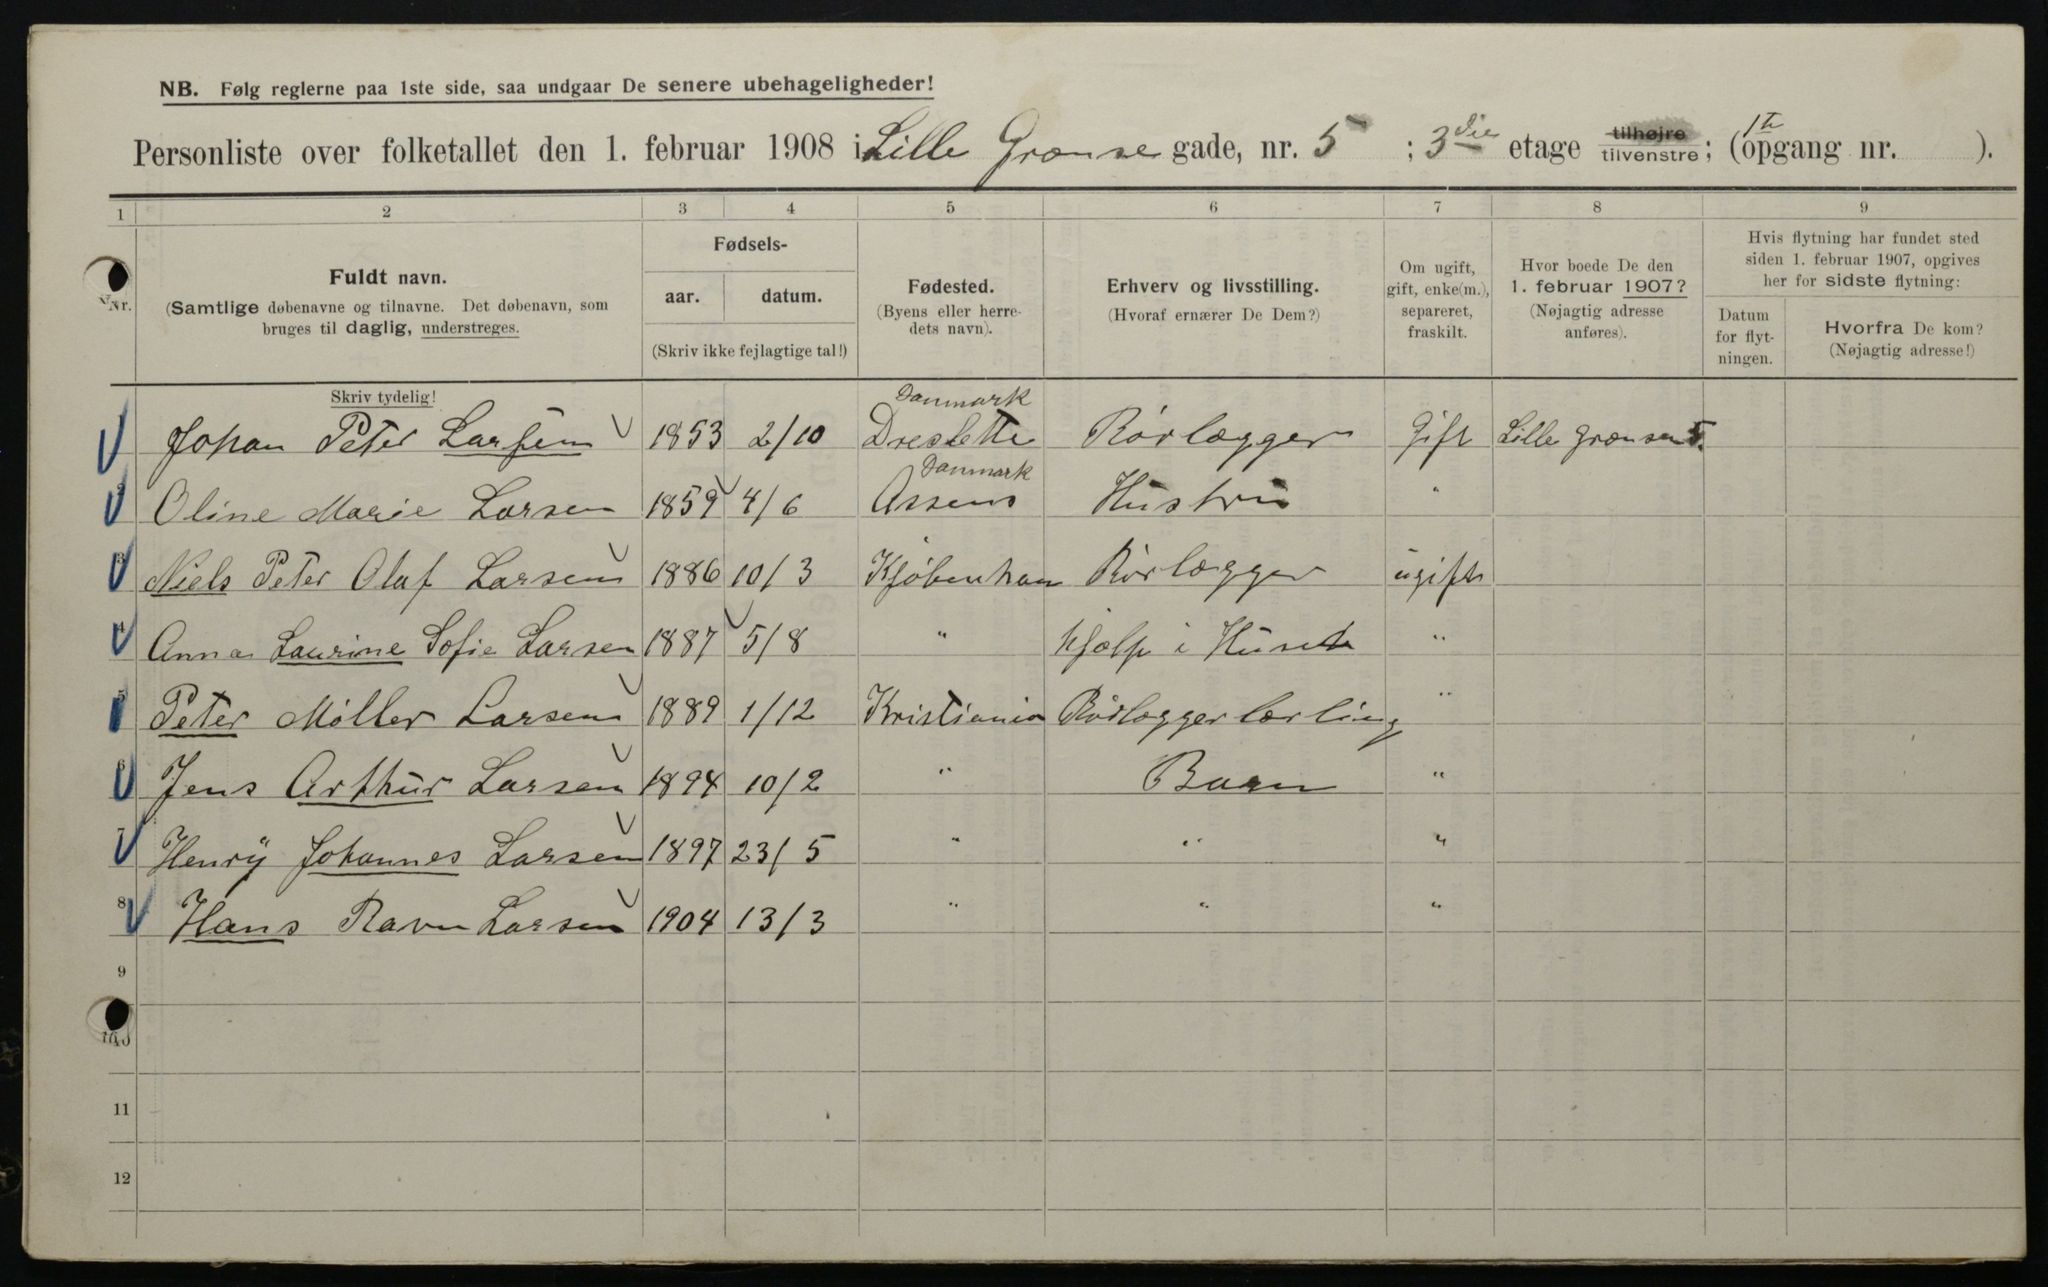 NB. Følg reglerne paa 1ste side, saa undgaar De senere ubehageligheder!
Personliste over folketallet den 1. februar 1908 i Lille Grænse gade, nr. 5 ; 3die etage tilhøjre tilvenstre; (opgang nr. ).
1 2 3 4 5 6 7 8 9
Nr.
Fuldt navn.
(Samtlige døbenavne og tilnavne. Det døbenavn, som
bruges til daglig, understreges.
Skriv tydelig!
Fødsels-
aar. datum.
(Skriv ikke fejlagtige tal!)
Fødested.
(Byens eller herre-
dets navn).
Erhverv og livsstilling.
(Hvoraf ernærer De Dem?)
Om ugift,
gift, enke(m.),
separeret,
fraskilt.
Hvor boede De den
1. februar 1907?
(Nøjagtig adresse
anføres).
Hvis flytning har fundet sted
siden 1. februar 1907, opgives
her for sidste flytning:
Datum
for flyt-
ningen.
Hvorfra De kom?
(Nøjagtig adresse!)
Danmark
Johan Peter Larsen 1853 2/10 Dreslette Rörlægger Gift Lille Grænsen 5.
Danmark
2 Oline Marie Larsen 1859 4/6 Assens Hustru "
3 Niels Peter Olaf Larsen 1886 10/3 Kjöbenhavn Rörlægger ugift
4 Anna Laurine Sofie Larsen 1887 5/8 " Hjælp i Huset "
5 Peter Möller Larsen 1889 1/12 Kristiania Rörlæggerlærling "
6 Jens Arthur Larsen 1894 10/2 " Barn "
7 Henry Johannes Larsen 1897 23/5 " " "
8 Hans Ravn Larsen 1904 13/3 " " "
9
10
11
12